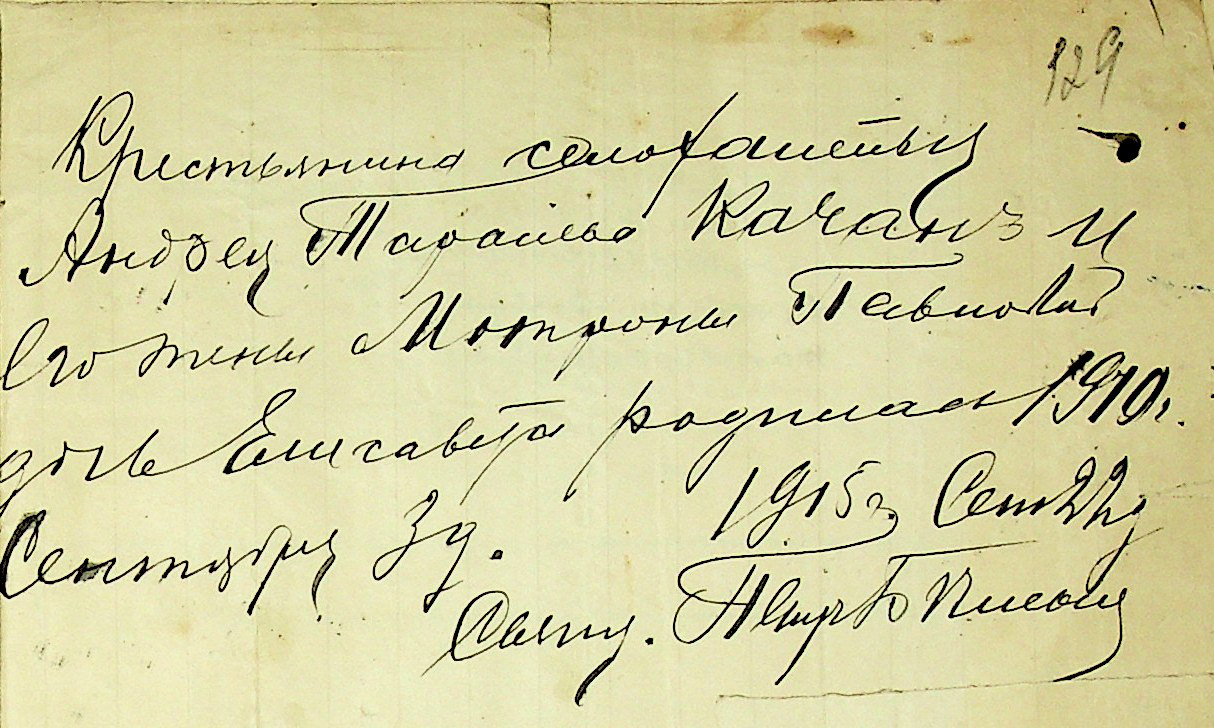 129
Крестьянина
Андрея Тарасьева Качанъ и
его жены Мотроны Павловой
дочь Елисавета родилась 1910 г.
Сентября 3 д. 1915 г. Сент 22 д
Свящ. Петръ